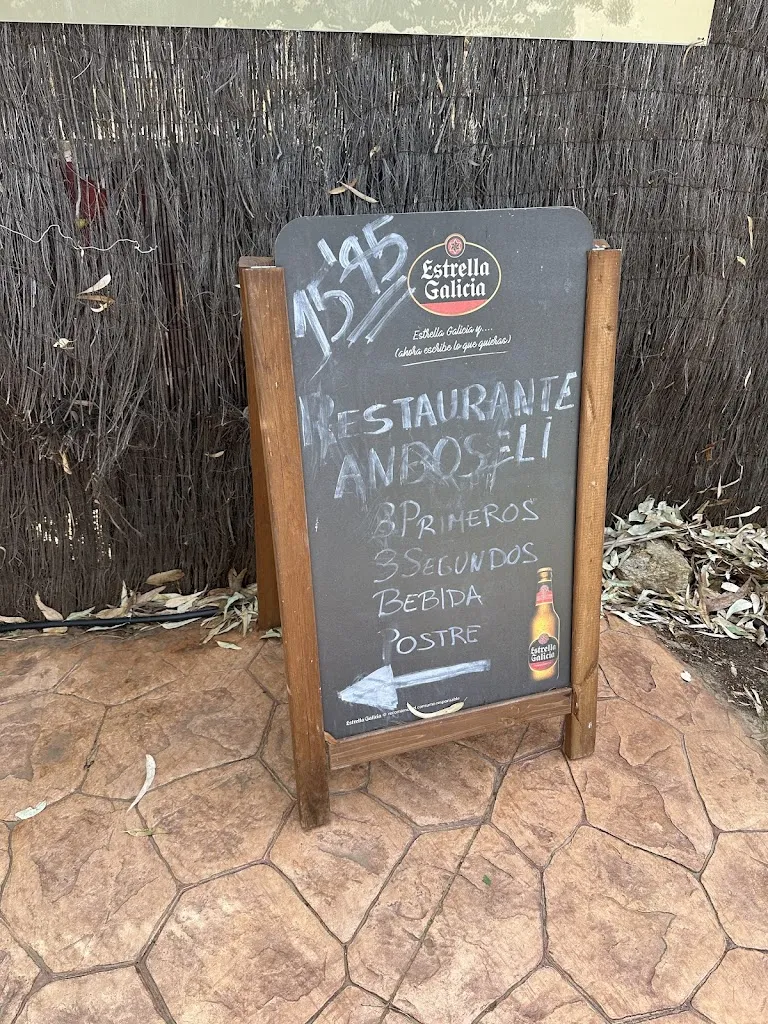 15'95
Estrella
Galicia
Estrella Galicia y....
(ahora escribe lo que quieras)
RESTAURANTE
ANBOSELI
3 PRIMEROS
3 SEGUNDOS
BEBIDA
POSTRE
Estrella
Galicia
Estrella Galicia